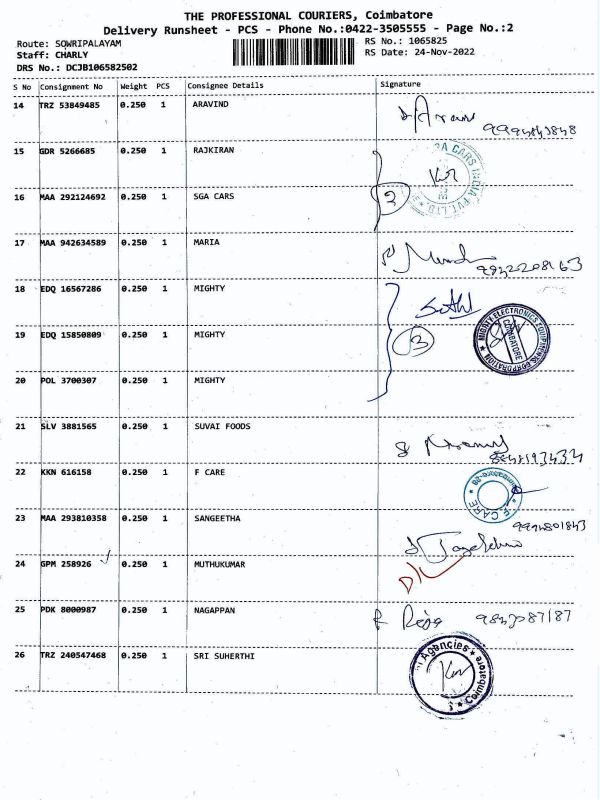 THE PROFESSIONAL COURIERS, Coimbatore
Delivery Runsheet - PCS - Phone No.:0422-3505555 - Page No.:2
Route: SOWRIPALAYAM RS No.: 1065825
Staff: CHARLY RS Date: 24-Nov-2022
DRS No.: DCJB106582502
S No Consignment No Weight PCS Consignee Details Signature
14 TRZ 53849485 0.250 1 ARAVIND
15 GDR 5266685 0.250 1 RAJKIRAN
16 MAA 292124692 0.250 1 SGA CARS
2
17 MAA 942634589 0.250 1 MARIA
18 EDQ 16567286 0.250 1 MIGHTY
19 EDQ 15850809 0.250 1 MIGHTY
3
MIGHTY ELECTRONICS EQUIPMENTS CORPORATION
COIMBATORE
20 POL 3700307 0.250 1 MIGHTY
21 SLV 3881565 0.250 1 SUVAI FOODS
22 KKN 616158 0.250 1 F CARE
F CARE
23 MAA 293810358 0.250 1 SANGEETHA
9994801843
24 GPM 258926 0.250 1 MUTHUKUMAR
25 PDK 8000987 0.250 1 NAGAPPAN
26 TRZ 240547468 0.250 1 SRI SUHERTHI
Agencies
Coimbatore